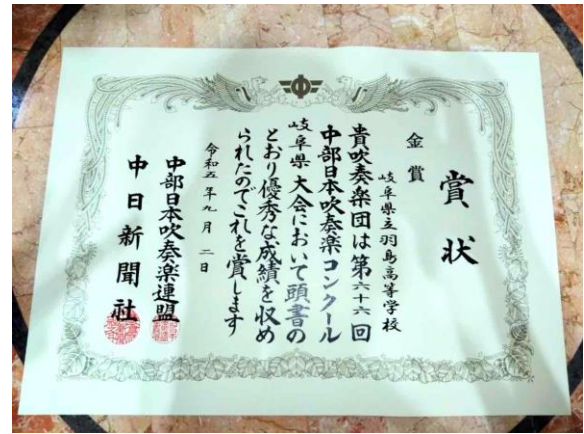 賞状
金賞
岐阜県立羽島高等学校
貴吹奏楽団は第六十六回
中部日本吹奏楽コンクール
岐阜県大会において頭書の
とおり優秀な成績を収め
られたのでこれを賞します
令和五年九月二日
中部日本吹奏楽連盟
中日新聞社